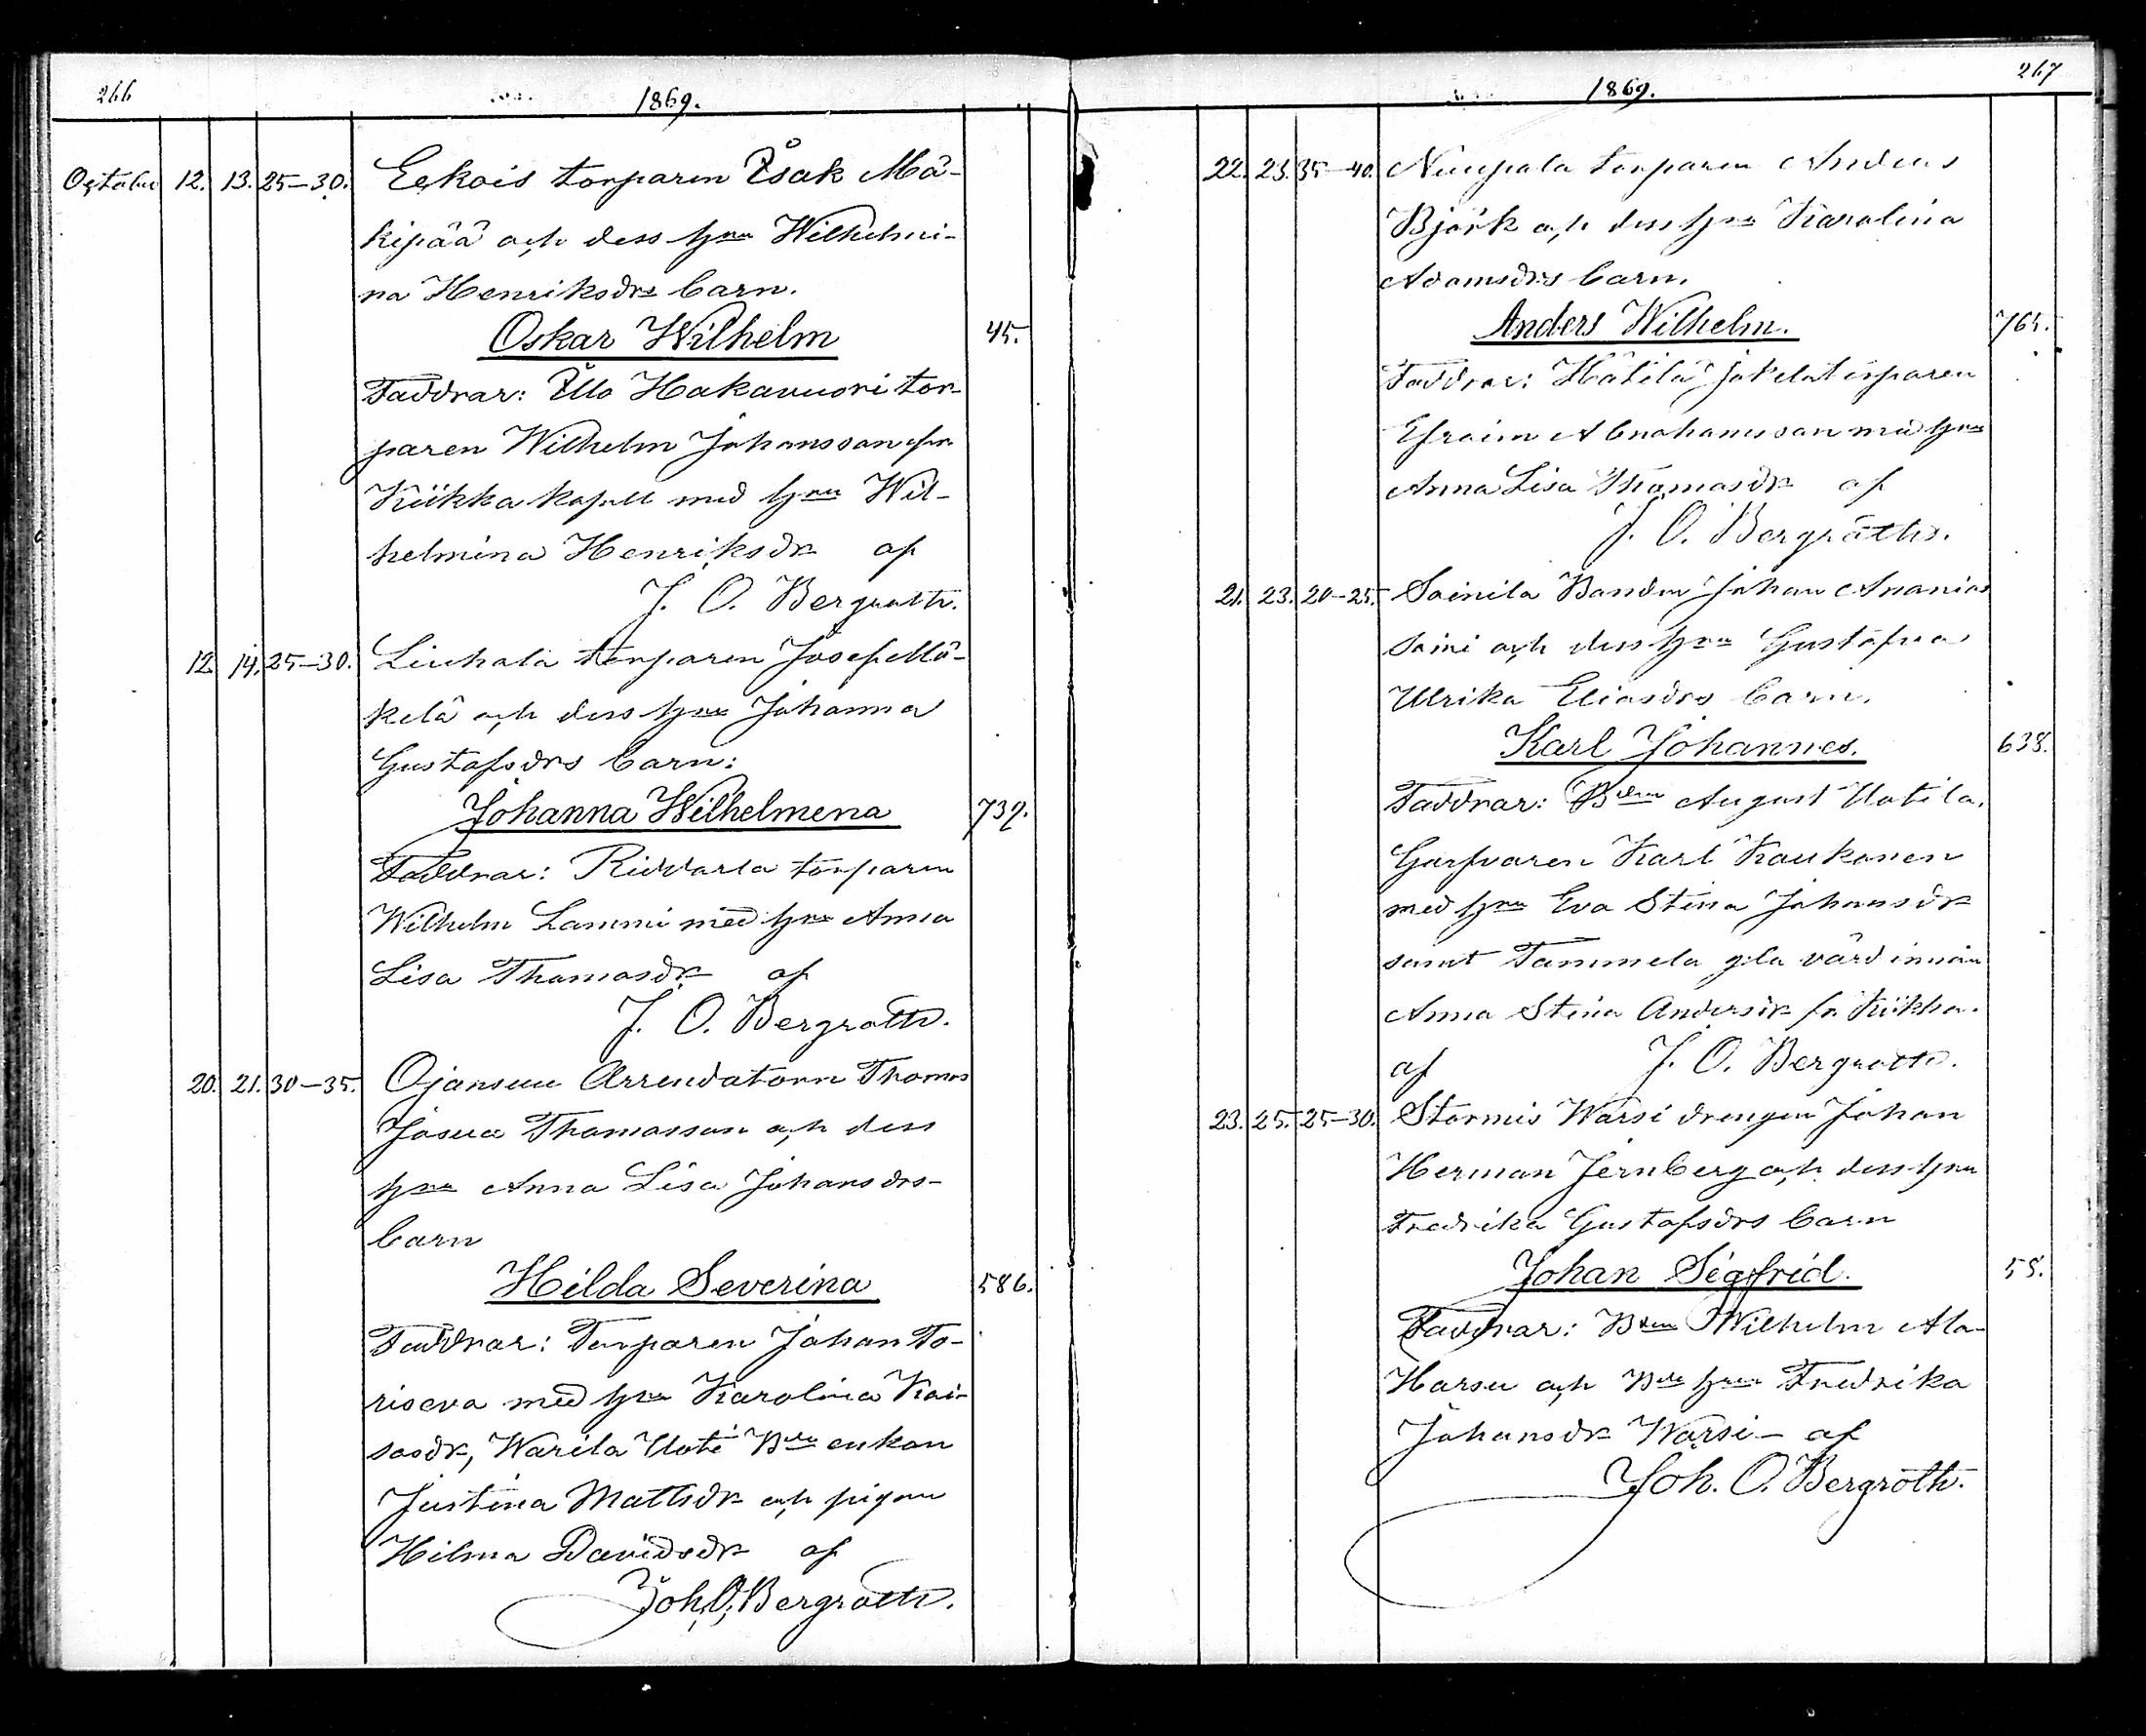 266
1869.
October 12. 13. 25–30. Eekois torparen Isak Mä-
kipää och dess h:nu Wilhelmi-
na Henriksdrs barn.
Oskar Wilhelm 45.
Faddrar: Illo Hakavuori tor-
paren Wilhelm Johansson från
Kiikka kapell med h:nu Wil-
helmina Henriksdr af
J. O. Bergroth.
12. 14. 25–30. Liuhala torparen Josef Mä-
kelä och dess h:nu Johanna
Gustafsdrs barn:
Johanna Wilhelmina 739.
Faddrar: Riddarla torparen
Wilhelm Lammi med h:nu Anna
Lisa Thomasdr af
J. O. Bergroth.
20. 21. 30–35. Ojansuu Arrendatorn Thomas
Josua Thomasson och dess
h:nu Anna Lisa Johansdrs-
barn
Hilda Severina 586.
Faddrar: Torparen Johan To-
riseva med h:nu Karolina Kai-
sasdr, Warila Uoti B:de enkan
Justina Mattsdr och pigan
Hilma Davidsdr af
Joh. O. Bergroth.
267
1869.
22. 23. 35–40. Nuupala torparen Anders
Björk och dess h:nu Karolina
Adamsdrs barn.
Anders Wilhelm. 765.
Faddrar: Hätilä Jokela torparen
Efraim Abrahamsson med h:nu
Anna Lisa Thomasdr af
J. O. Bergroth.
21. 23. 20–25. Sainila Bonden Johan Ananias
Saini och dess h:nu Gustafva
Ulrika Eliasdrs barn.
Karl Johannes. 638.
Faddrar: B:den August Uotila,
Garfvaren Karl Kaukonen
med h:nu Eva Stina Johansdr
samt Tammela g:la värdinnan
Anna Stina Andersdr fr. Kiikka.
af J. O. Bergroth.
23. 25. 25–30. Stormis Warsi drengen Johan
Herman Jernberg och dess h:nu
Fredrika Gustafsdrs barn
Johan Sigfrid. 58.
Faddrar: B:den Wilhelm Ala-
Harsu och B:de h:nu Fredrika
Johansdr Warsi – af
Joh. O. Bergroth.